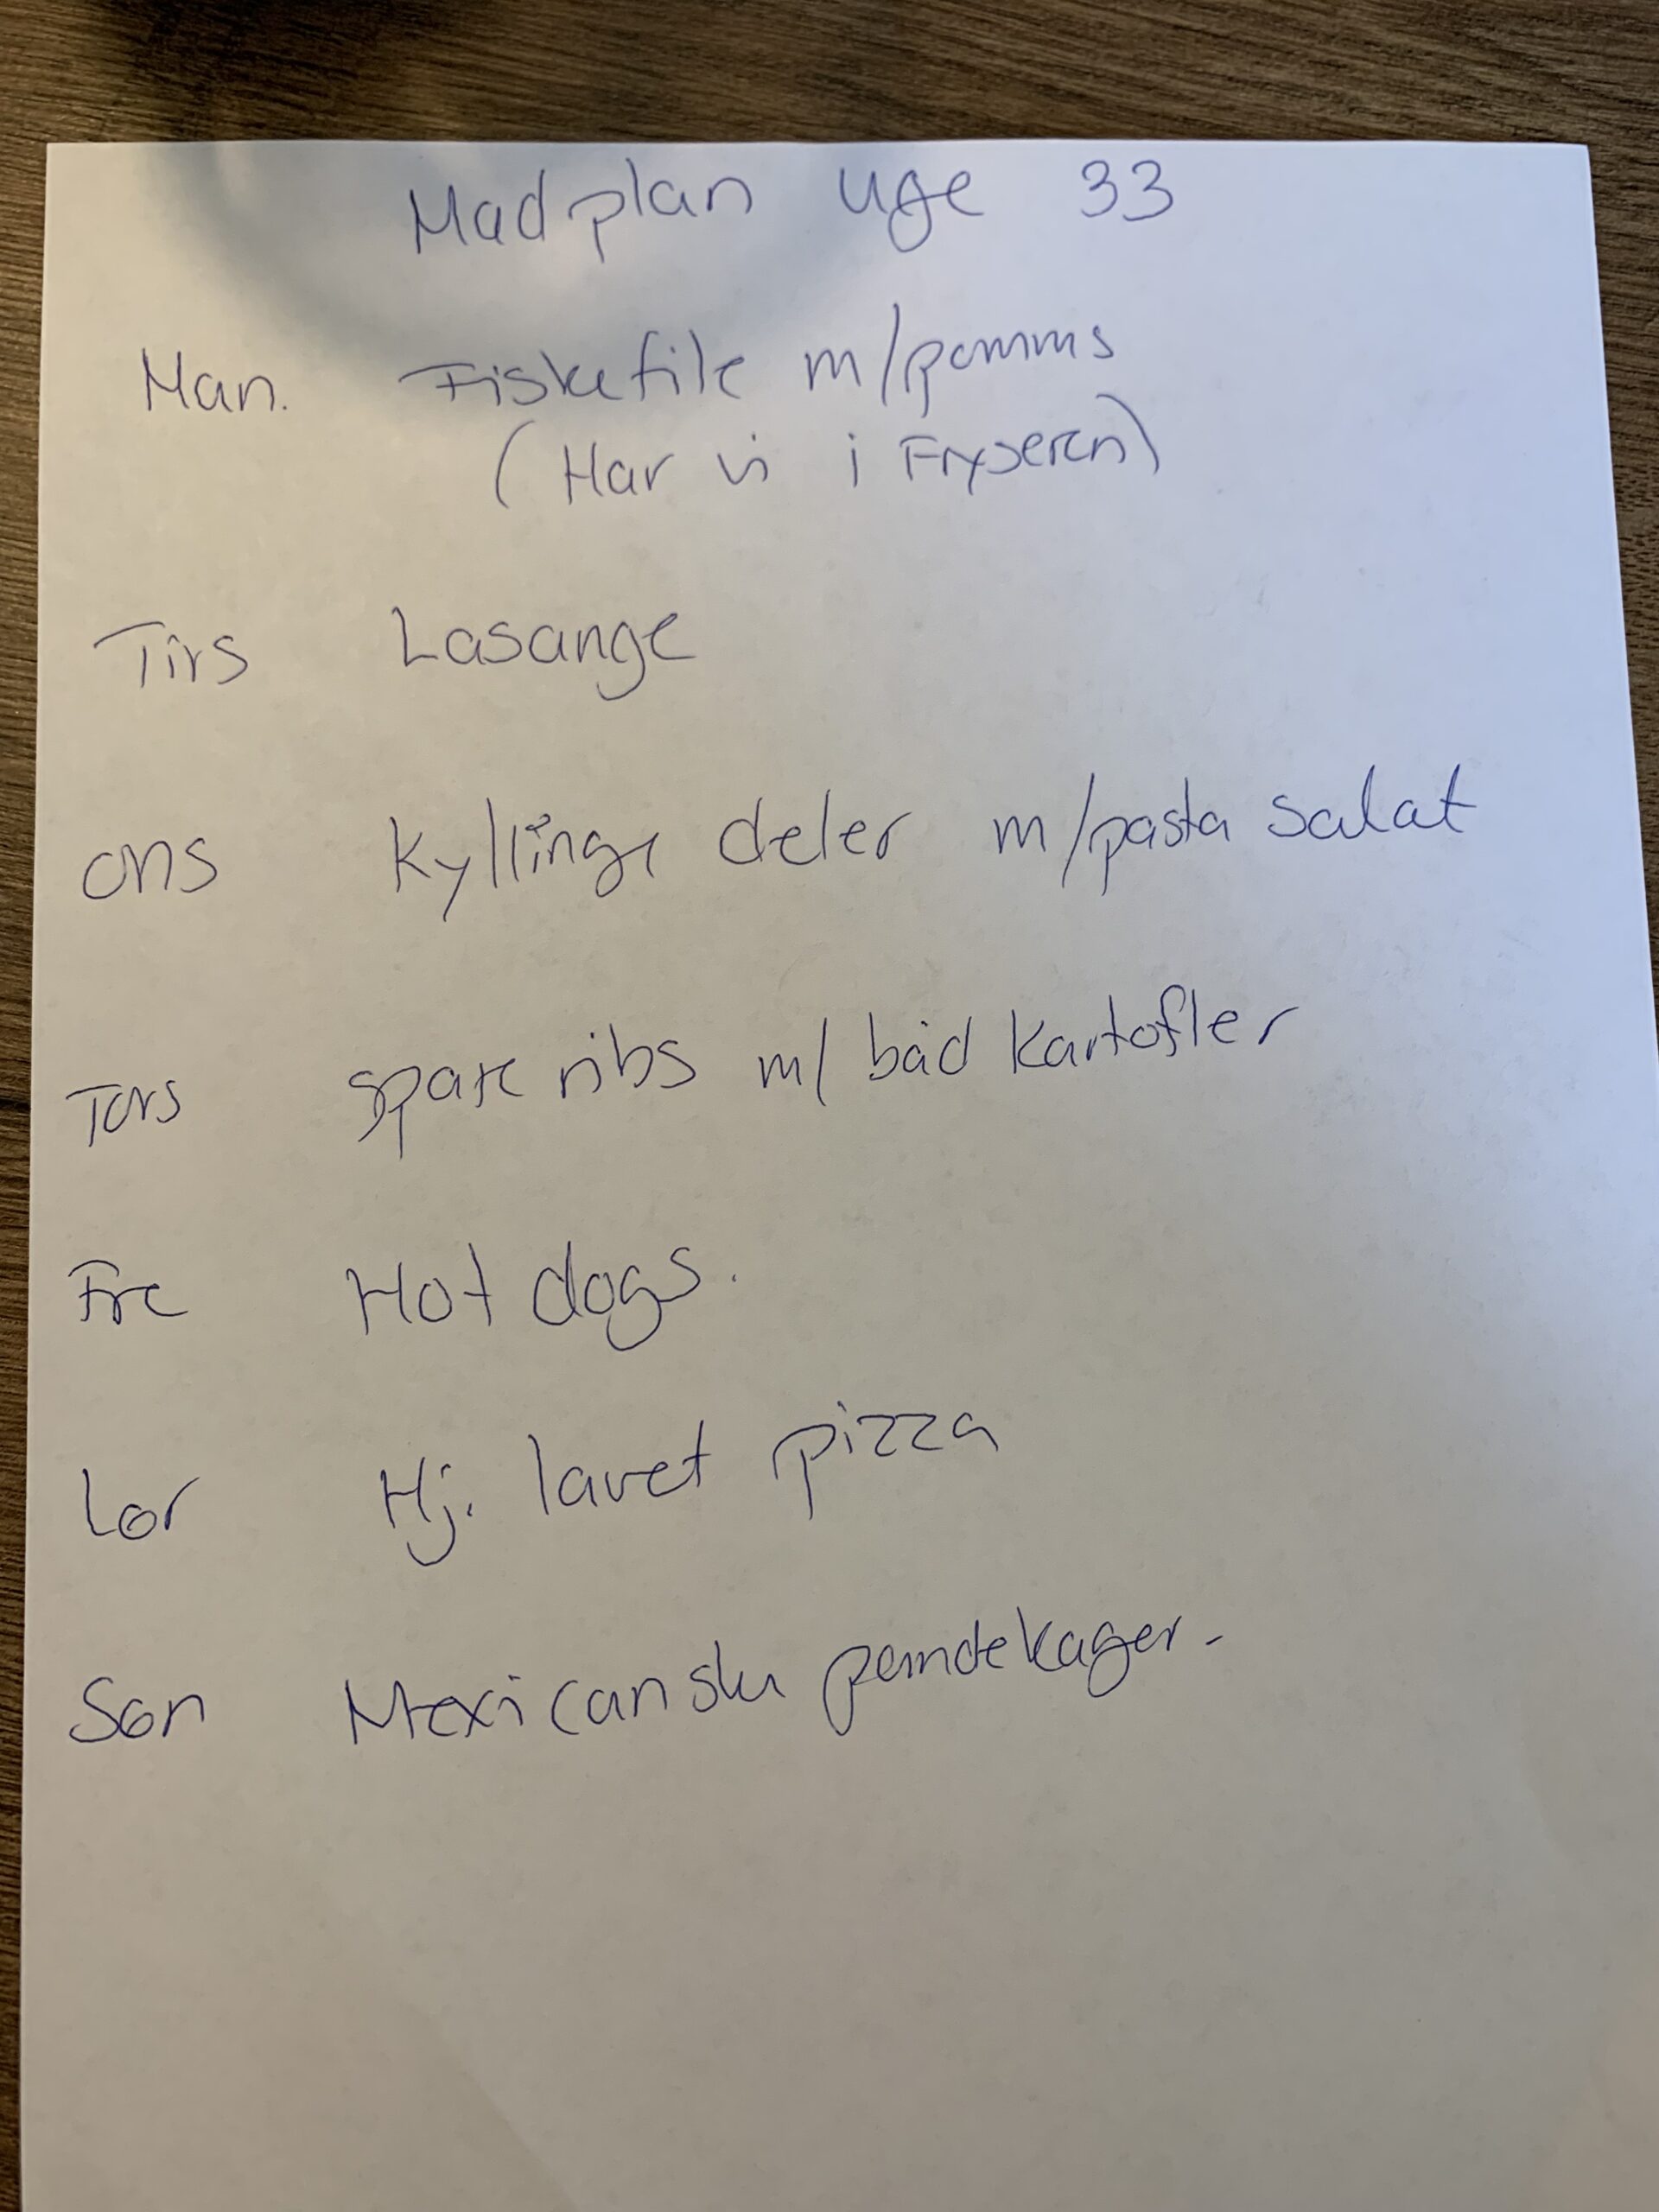 Madplan uge 33
Man. Fiskefile m/pomms
(Har vi i Fryseren)
Tirs Lasange
ons Kyllinge deler m/pasta salat
Tors spare ribs m/ båd kartofler
Fre Hot dogs.
Lør Hj. lavet pizza
Søn Mexicanske pandekager.